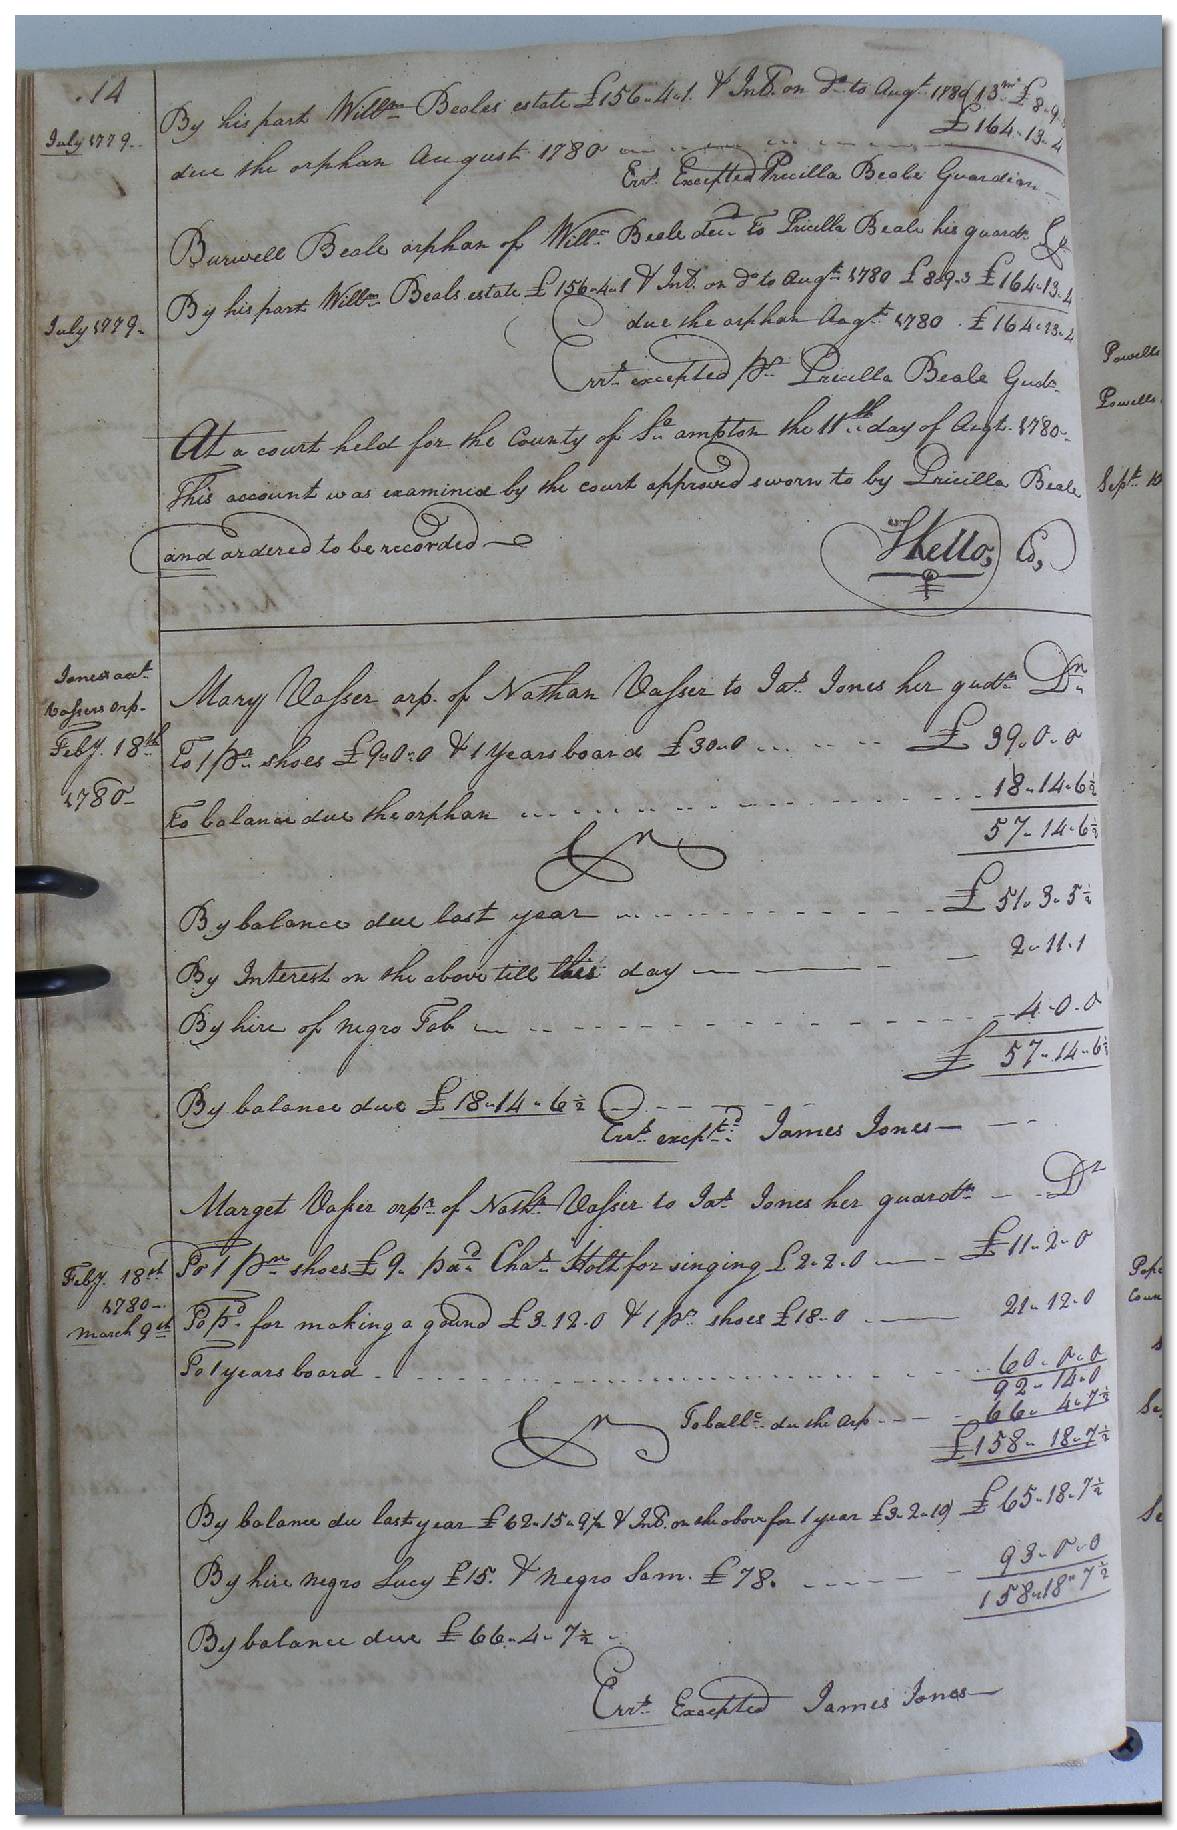 14
July 1779
By his part Willm Beales estate £156..4..1. & Int. on do to Augt 1780 13mo £8..9..3
£164..13..4
due the orphan August 1780
Errs. Excepted Pricilla Beale Guardian
Burwell Beale orphan of Willm Beale decd To Pricilla Beale his guardn. Cr
July 1779
By his part Willm Beals estate £156..4..1 & Int. on do to Augt 1780 £8..9..3 £164..13..4
due the orphan Augt 1780 . £164..13..4
Errs excepted pr Pricilla Beale Gudn.
At a court held for the County of So ampton the 11th day of Augt. 1780
This account was examined by the court approved sworn to by Pricilla Beale
and ordered to be recorded
Co,
Jones acct
Vassers orp.
Feby. 18th
1780
Mary Vasser orp. of Nathan Vasser to Jas. Jones her gudn Dr
To 1 pr shoes £9..0..0 & 1 years board £30..0 £ 39..0..0
To balance due the orphan 18..14..6½
57..14..6½
Cr
By balance due last year £51..3..5½
By Interest on the above till this day 2..11..1
By hire of negro Tab 4..0..0
£ 57..14..6½
By balance due £18..14..6½
Errs. exceptd. James Jones
Marget Vasser orpn. of Nathn. Vasser to Jas. Jones her guardn Dr
Feby. 18th
1780
March 9th
To 1 pr shoes £9. paid Chas. Holt for singing £2..2..0 £11..2..0
To pd. for making a gound £3..12..0 & 1 pr shoes £18..0 21..12..0
To 1 years board 60..0..0
92..14..0
To ballc. du the orp 66..4..7½
Cr
£158..18..7½
By balance du last year £62..15..9½ & Int. on the above for 1 year £3..2..10 £65..18..7½
By hire negro Lucy £15. & negro Sam. £78. 93..0..0
158..18..7½
By balance due £66..4..7½
Errs Excepted James Jones
Powells
Powells
Sept. 10